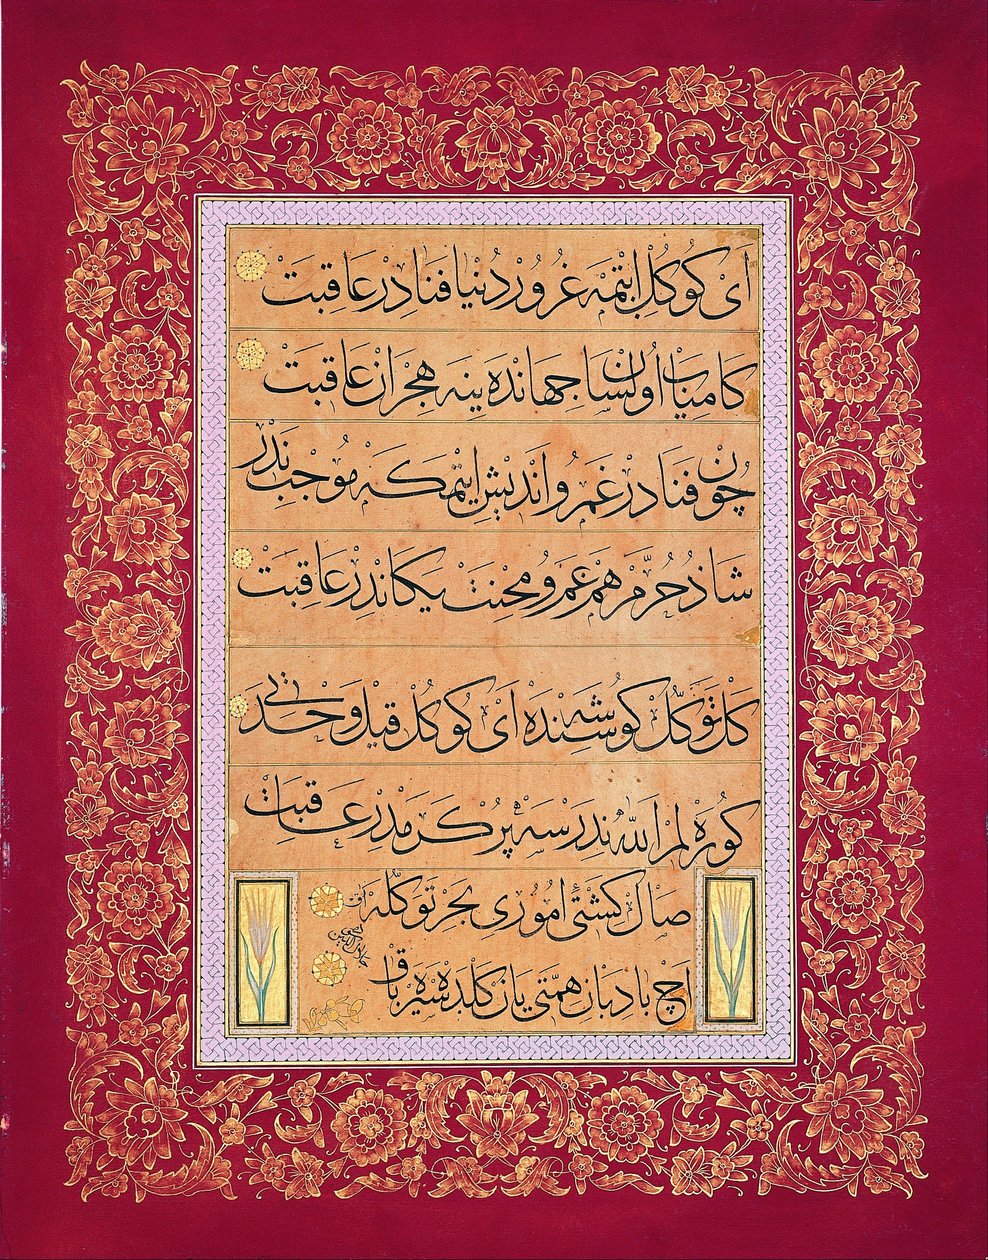 اَی كوكُل ایتمَه غُرور دُنیا فنادِر عاقبتْ
كامیاب اولسان جهانده ینه هجران عاقبتْ
چُون فنادر غم و اندیش ایتمكه مُوجب ندر
شاذ خُرّم هم غم و محنت یكاندر عاقبتْ
كل توَكّل كوشه سنده اَی كوكُل قیل وحدتی
كوره لم الله ندرسه پُر كرمدر عاقبت
صال كشتئ اموری بحر توكّله
اچ بادبان همّتی یان كلده سیره باق